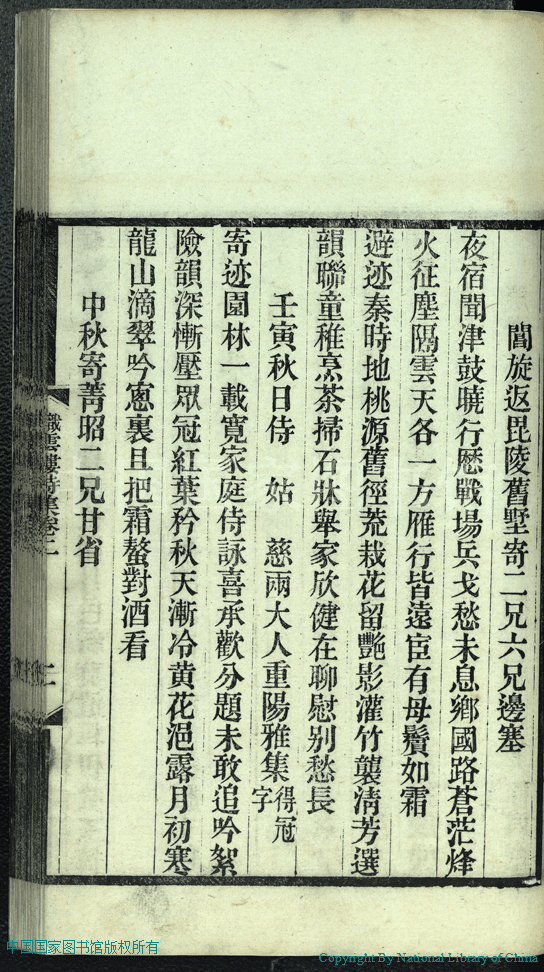 閶旋返毘陵舊墅寄二兄六兄邊塞
夜宿聞津鼓曉行歷戰場兵戈愁未息鄉國路蒼茫烽
火征塵隔雲天各一方雁行皆遠宦有母鬢如霜
避迹秦時地桃源舊徑荒栽花留艷影灌竹襲清芳選
韻聯童稚烹茶掃石牀舉家欣健在聊慰别愁長
壬寅秋日侍 姑 慈兩大人重陽雅集得冠字
寄迹園林一載寬家庭侍詠喜承歡分題未敢追吟絮
險韻深慚壓眾冠紅葉矜秋天漸冷黄花浥露月初寒
龍山滴翠吟窻裏且把霜螯對酒看
中秋寄菁昭二兄甘省
織雲樓詩集卷二
二
中国国家图书馆版权所有
Copyright By National Library of China